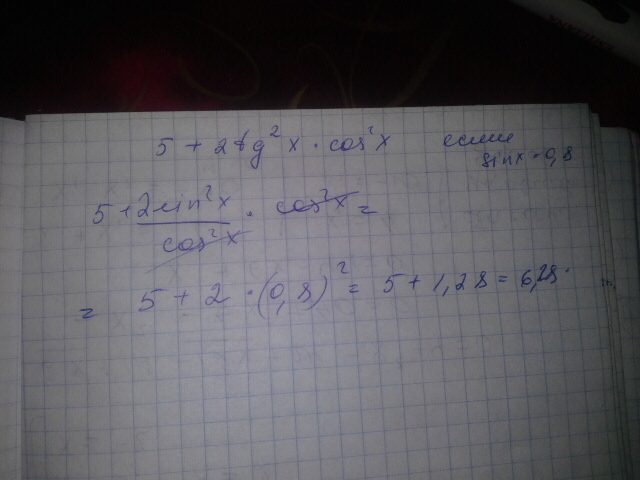 5 + 2tg²x · cos²x если
sinx = 0,8
5 + 2sin²x/cos²x · cos²x =
= 5 + 2 · (0,8)² = 5 + 1,28 = 6,28.